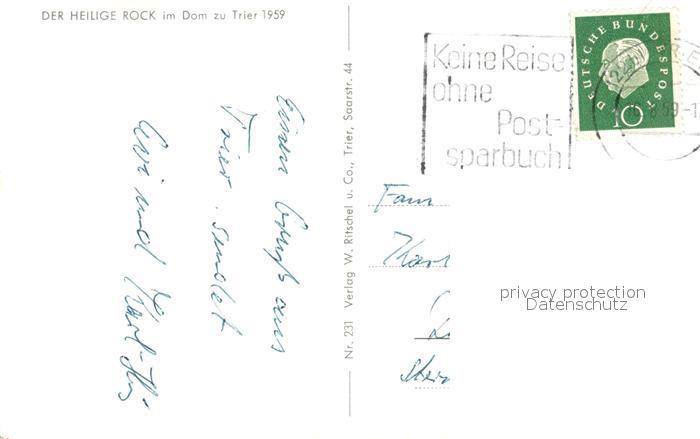 DER HEILIGE ROCK im Dom zu Trier 1959
Einen Gruß aus
Trier sendet
Evi und Karl-Hz
Nr. 231 Verlag W. Ritschel u. Co., Trier, Saarstr. 44
Keine Reise
ohne
Post-
sparbuch
DEUTSCHE BUNDESPOST
10
Fam
Karl
privacy protection
Datenschutz